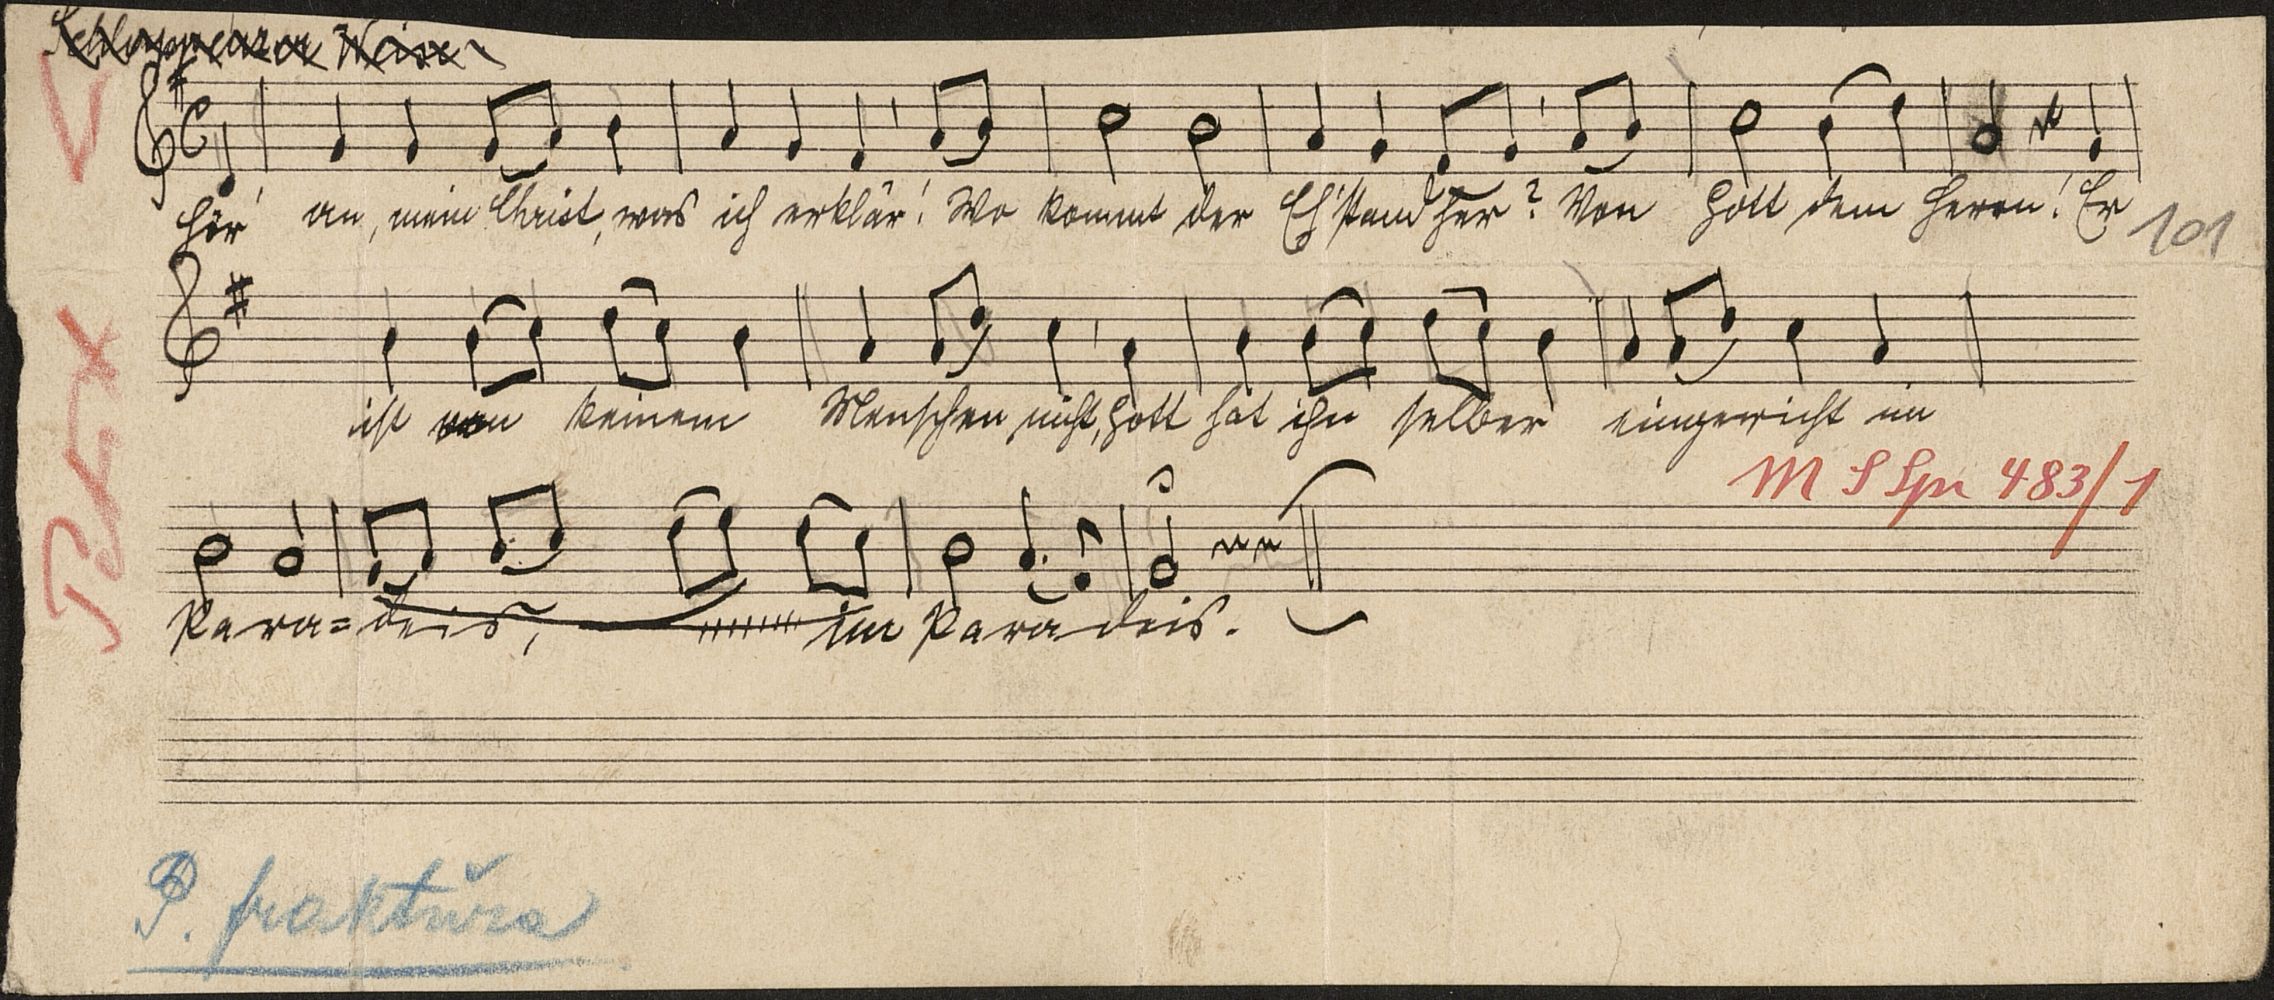 Schlappenzer Weise
Hör' an, mein Christ, was ich erklär'! Wo kommt der Eh'stand her? Von Gott dem Herrn! Er
101
ist von keinem Menschen nicht, Gott hat ihn selber eingericht im
M S Spr 483/1
Para=deis, im Paradeis.
P. fraktura